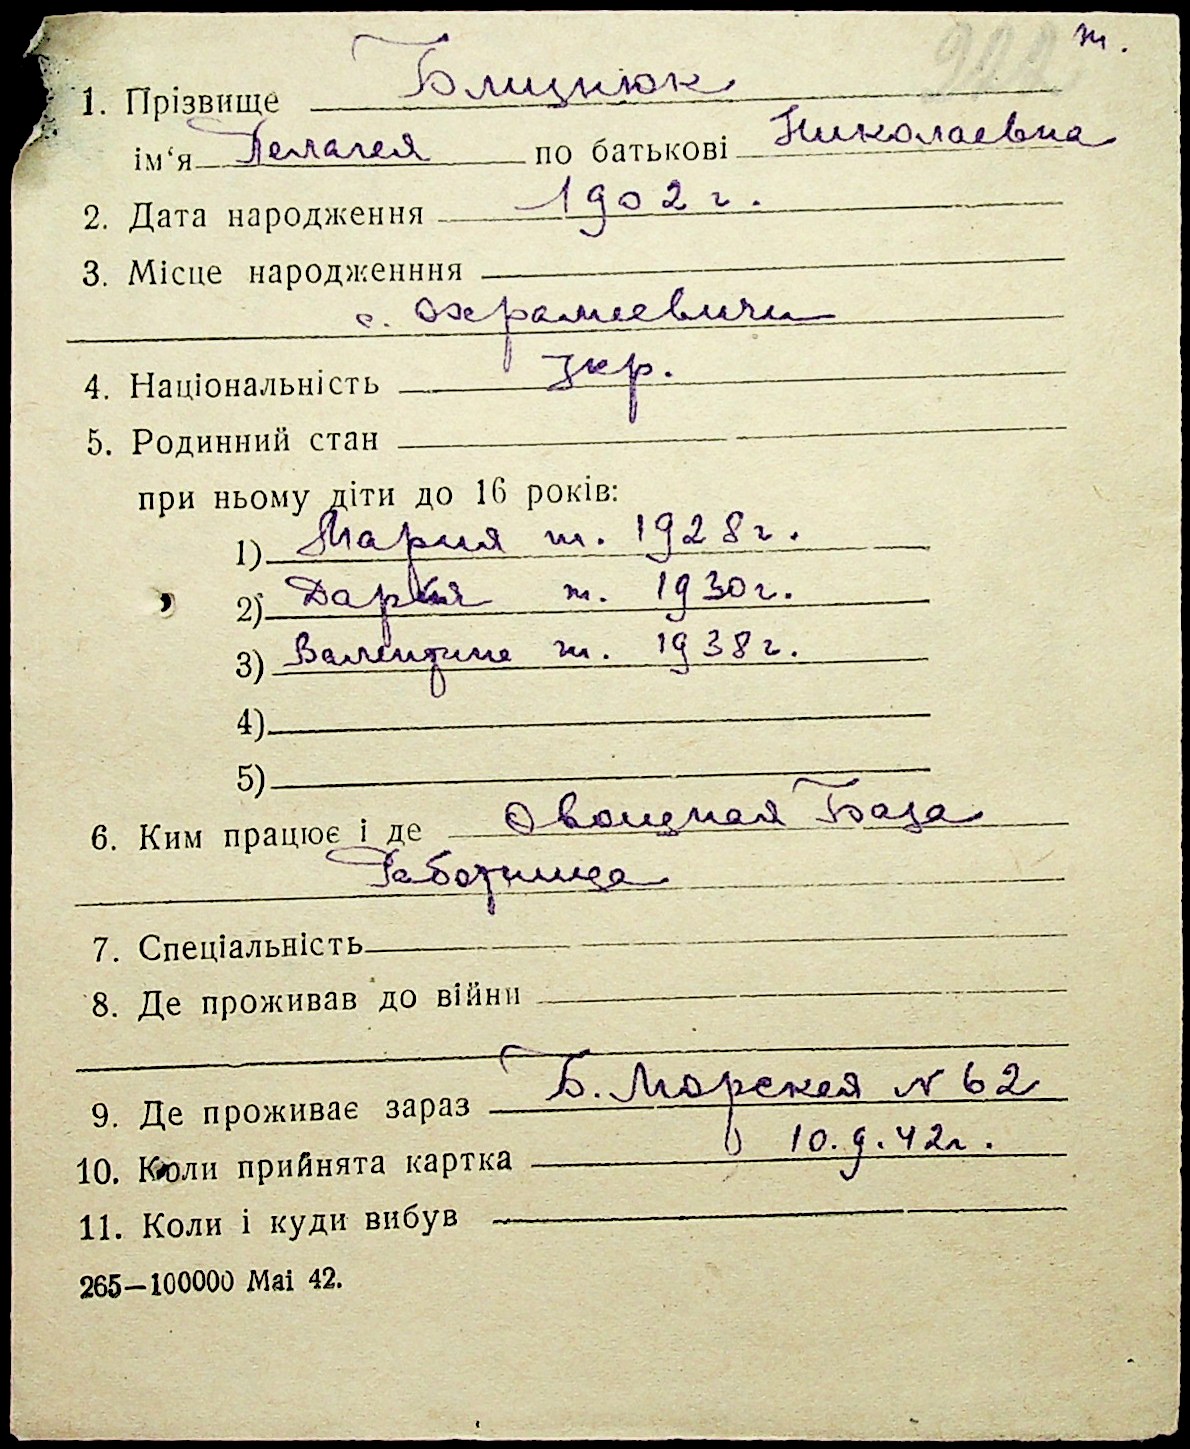 ж.
1. Прізвище Блицнюк
ім‘я Пелагея по батькові Николаевна
2. Дата народження 1902 г.
3. Місце народженння
с. Охрамиевичи
4. Національність укр.
5. Родинний стан
при ньому діти до 16 років:
1) Мария ж. 1928 г.
2) Дария ж. 1930 г.
3) Валентина ж. 1938 г.
4)
5)
6. Ким працює і де Овощная База
Работница
7. Спеціальність
8. Де проживав до війни
9. Де проживає зараз Б. Морская N 62
10. Коли прийнята картка 10.9.42 г.
11. Коли і куди вибув
265—100000 Маі 42.